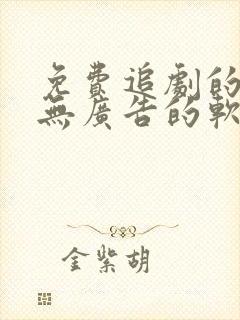 免費追劇的
無廣告的軟
金紫胡